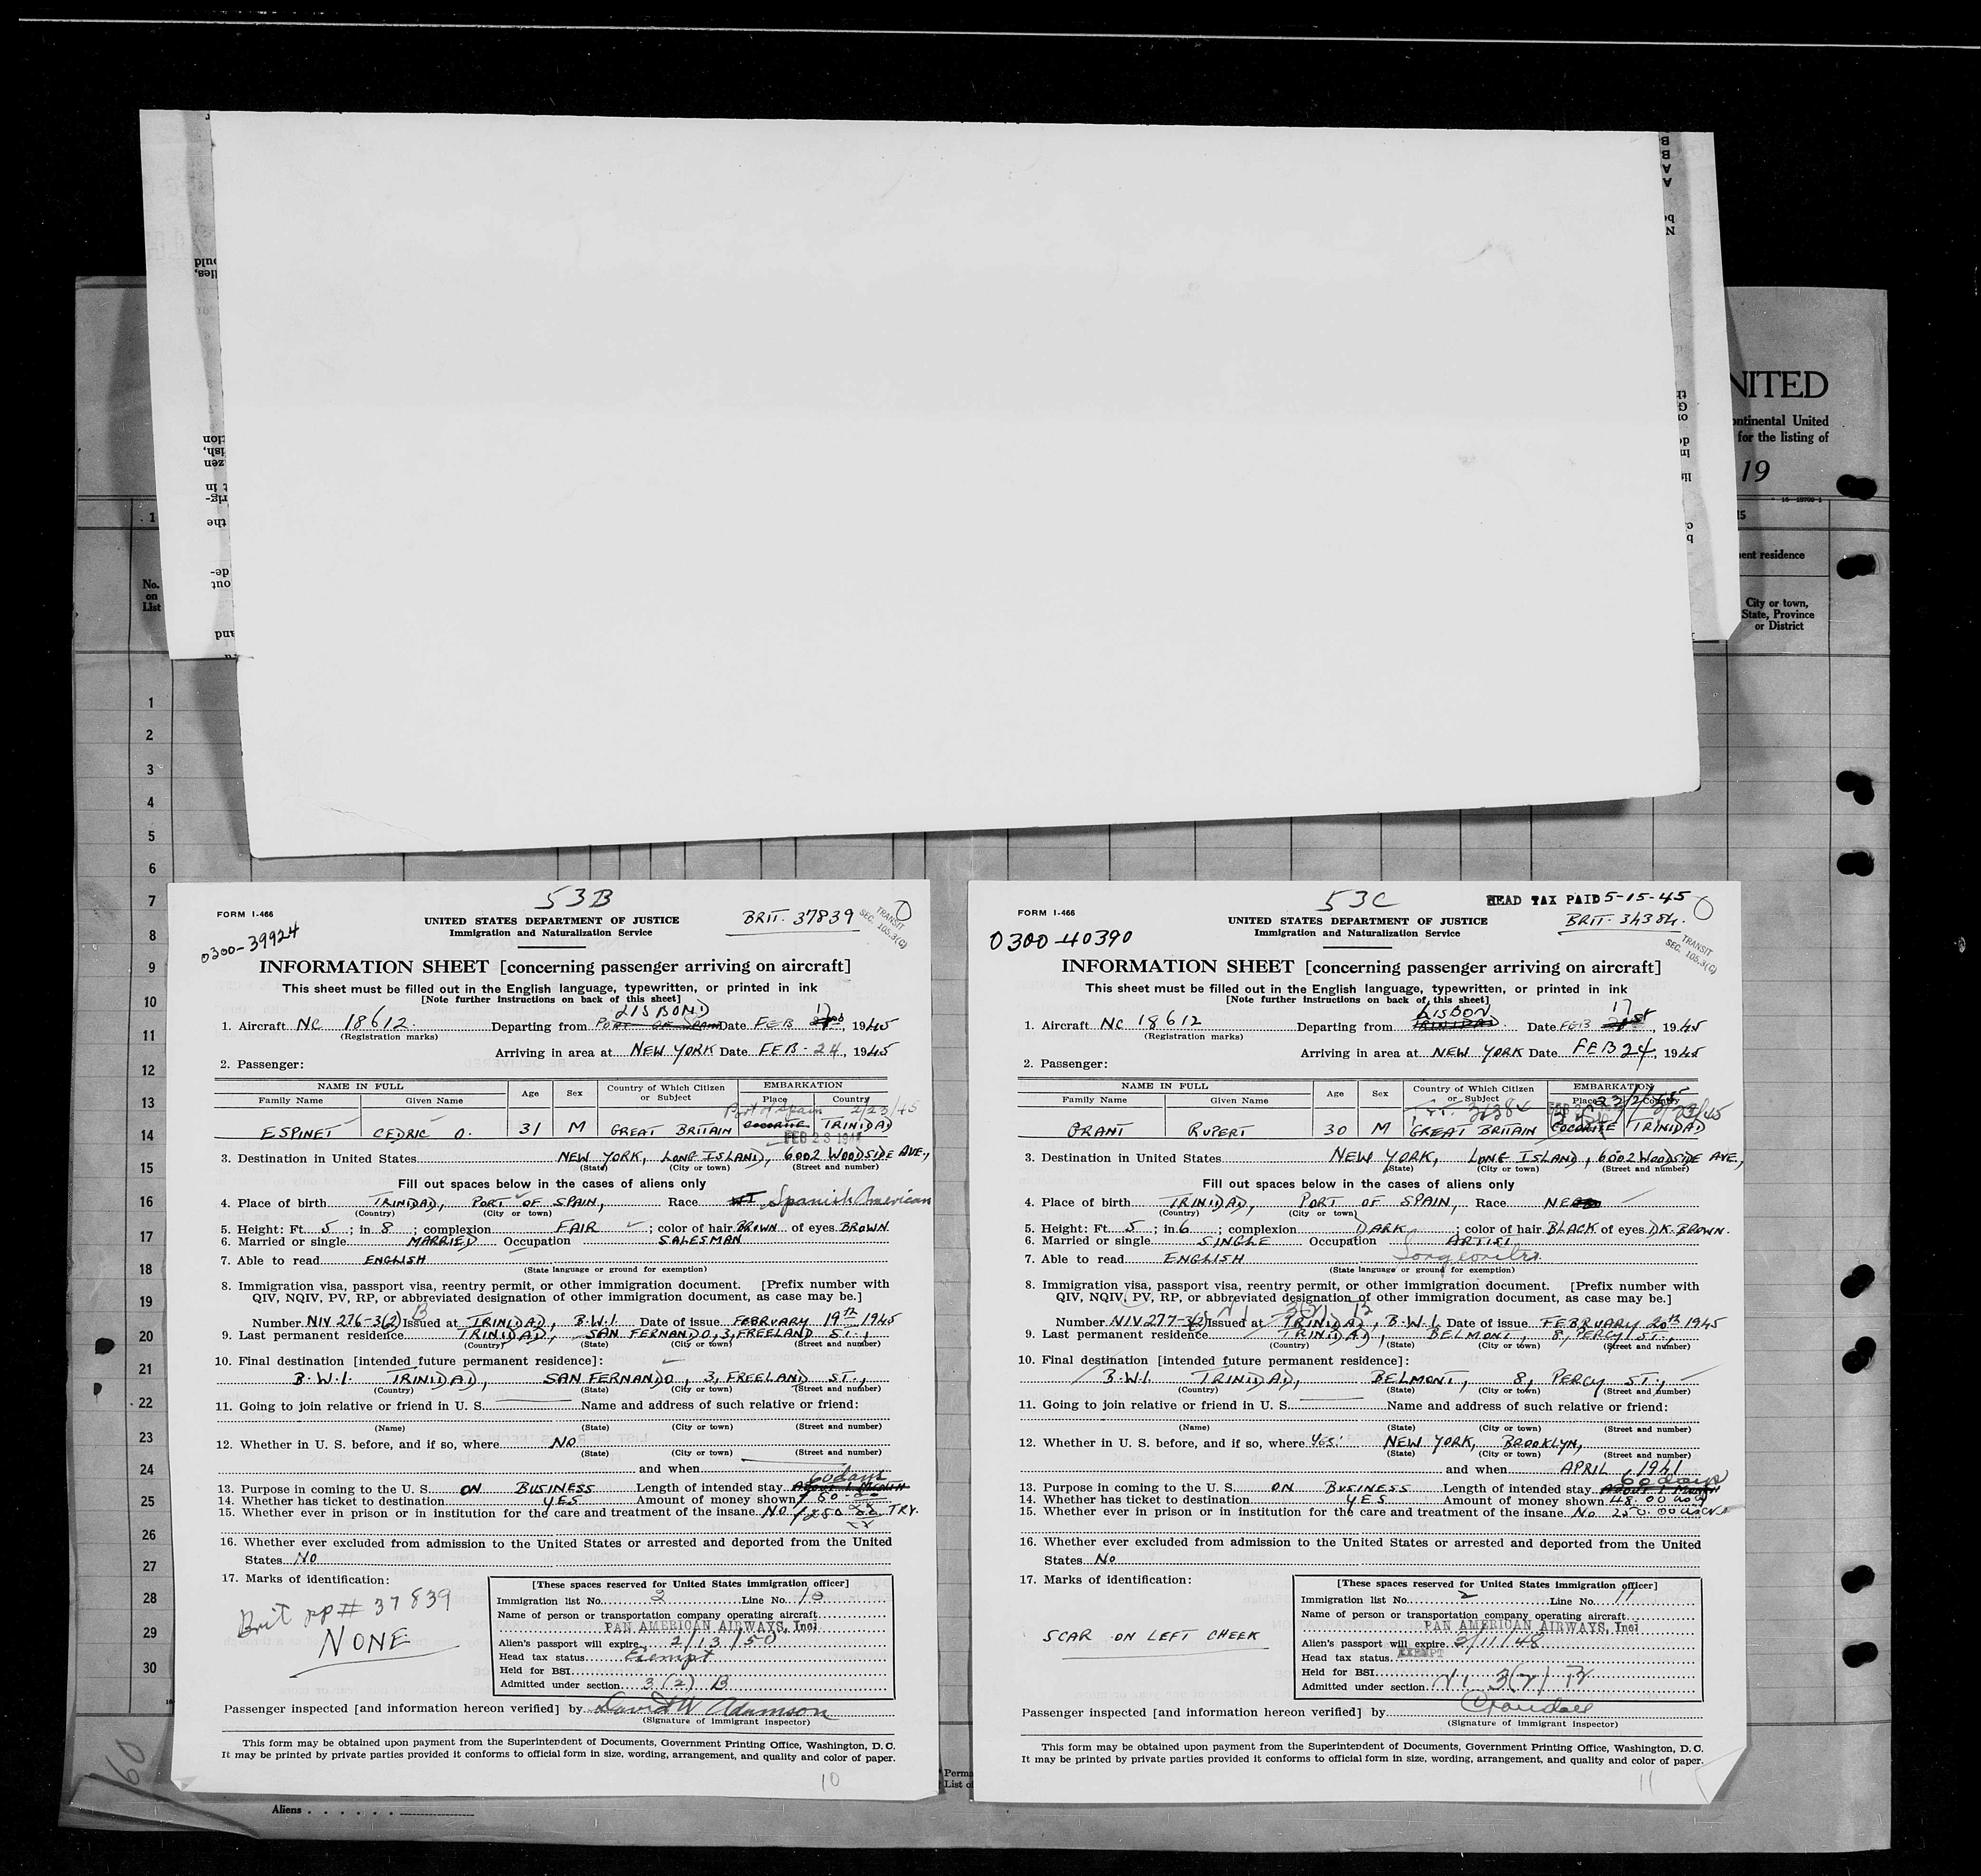 NITED
ontinental United
for the listing of
19
No.
on
List
ent residence
City or town,
State, Province
or District
1
2
3
4
5
6
7
8
9
10
11
12
13
14
15
16
17
18
19
20
21
22
23
24
25
26
27
28
29
30
60
Aliens
53B
FORM I-466
0300-39924
UNITED STATES DEPARTMENT OF JUSTICE
Immigration and Naturalization Service
BRIT. 37839
TRANSIT
SEC. 105.3(G)
INFORMATION SHEET [concerning passenger arriving on aircraft]
This sheet must be filled out in the English language, typewritten, or printed in ink
[Note further instructions on back of this sheet]
LISBON 17
1. Aircraft NC 18612 Departing from PORT OF SPAIN Date FEB , 1945
(Registration marks)
Arriving in area at NEW YORK Date FEB-24, 1945
2. Passenger:
NAME IN FULL Age Sex Country of Which Citizen or Subject EMBARKATION
Family Name Given Name Place Country
Port of Spain 2/23/45
ESPINET CEDRIC O. 31 M GREAT BRITAIN COCORITE TRINIDAD
FEB 23 194
3. Destination in United States NEW YORK, LONG ISLAND, 6002 WOODSIDE AVE.,
(State) (City or town) (Street and number)
Fill out spaces below in the cases of aliens only
4. Place of birth TRINIDAD, PORT OF SPAIN, Race Spanish American
(Country) (City or town)
5. Height: Ft. 5 ; in 8 ; complexion FAIR ; color of hair BROWN of eyes BROWN
6. Married or single MARRIED Occupation SALESMAN
7. Able to read ENGLISH
(State language or ground for exemption)
8. Immigration visa, passport visa, reentry permit, or other immigration document. [Prefix number with
QIV, NQIV, PV, RP, or abbreviated designation of other immigration document, as case may be.]
B
Number NIV 276-3(2) Issued at TRINIDAD, B.W.I. Date of issue FEBRUARY 19th 1945
9. Last permanent residence TRINIDAD, SAN FERNANDO, 3, FREELAND ST.,
(Country) (State) (City or town) (Street and number)
10. Final destination [intended future permanent residence]:
B.W.I. TRINIDAD, SAN FERNANDO, 3, FREELAND ST.,
(Country) (State) (City or town) (Street and number)
11. Going to join relative or friend in U. S. Name and address of such relative or friend:
(Name) (State) (City or town) (Street and number)
12. Whether in U. S. before, and if so, where NO
(State) (City or town) (Street and number)
and when
60 days
13. Purpose in coming to the U. S. ON BUSINESS Length of intended stay ABOUT 1 MONTH
14. Whether has ticket to destination YES Amount of money shown
15. Whether ever in prison or in institution for the care and treatment of the insane NO
16. Whether ever excluded from admission to the United States or arrested and deported from the United
States NO
17. Marks of identification:
Brit pp# 37839
NONE
[These spaces reserved for United States immigration officer]
Immigration list No. 2 Line No. 10
Name of person or transportation company operating aircraft
PAN AMERICAN AIRWAYS, Inc.
Alien's passport will expire 2/13/50
Head tax status Exempt
Held for BSI
Admitted under section 3(2) B
Passenger inspected [and information hereon verified] by David W Adamson
(Signature of immigrant inspector)
This form may be obtained upon payment from the Superintendent of Documents, Government Printing Office, Washington, D. C.
It may be printed by private parties provided it conforms to official form in size, wording, arrangement, and quality and color of paper.
10
53C
HEAD TAX PAID 5-15-45
FORM I-466
0300-40390
UNITED STATES DEPARTMENT OF JUSTICE
Immigration and Naturalization Service
BRIT. 34384.
TRANSIT
SEC. 105.3(G)
INFORMATION SHEET [concerning passenger arriving on aircraft]
This sheet must be filled out in the English language, typewritten, or printed in ink
[Note further instructions on back of this sheet]
LISBON 17
1. Aircraft NC 18612 Departing from TRINIDAD Date FEB 21st, 1945
(Registration marks)
Arriving in area at NEW YORK Date FEB 24, 1945
2. Passenger:
NAME IN FULL Age Sex Country of Which Citizen or Subject EMBARKATION
Family Name Given Name Place Country
GRANT RUPERT 30 M GREAT BRITAIN COCORITE TRINIDAD
3. Destination in United States NEW YORK, LONG ISLAND, 6002 WOODSIDE AVE.,
(State) (City or town) (Street and number)
Fill out spaces below in the cases of aliens only
4. Place of birth TRINIDAD, PORT OF SPAIN, Race
(Country) (City or town)
5. Height: Ft. 5 ; in 6 ; complexion DARK ; color of hair BLACK of eyes DK. BROWN.
6. Married or single SINGLE Occupation ARTIST
Songwriter
7. Able to read ENGLISH
(State language or ground for exemption)
8. Immigration visa, passport visa, reentry permit, or other immigration document. [Prefix number with
QIV, NQIV, PV, RP, or abbreviated designation of other immigration document, as case may be.]
Number NIV 277-3(2) Issued at TRINIDAD, B.W.I. Date of issue FEBRUARY 20th 1945
9. Last permanent residence TRINIDAD, BELMONT, 8, PERCY ST.,
(Country) (State) (City or town) (Street and number)
10. Final destination [intended future permanent residence]:
B.W.I. TRINIDAD, BELMONT, 8, PERCY ST.,
(Country) (State) (City or town) (Street and number)
11. Going to join relative or friend in U. S. Name and address of such relative or friend:
(Name) (State) (City or town) (Street and number)
12. Whether in U. S. before, and if so, where YES. NEW YORK, BROOKLYN,
(State) (City or town) (Street and number)
and when APRIL, 1941
60 days
13. Purpose in coming to the U. S. ON BUSINESS Length of intended stay ABOUT 1 MONTH
14. Whether has ticket to destination YES Amount of money shown 48.00
15. Whether ever in prison or in institution for the care and treatment of the insane No 250.00
16. Whether ever excluded from admission to the United States or arrested and deported from the United
States No
17. Marks of identification:
SCAR ON LEFT CHEEK
[These spaces reserved for United States immigration officer]
Immigration list No. 2 Line No. 11
Name of person or transportation company operating aircraft
PAN AMERICAN AIRWAYS, Inc.
Alien's passport will expire 2/11/48
Head tax status EXEMPT
Held for BSI
Admitted under section 3(2) B
Passenger inspected [and information hereon verified] by
(Signature of immigrant inspector)
This form may be obtained upon payment from the Superintendent of Documents, Government Printing Office, Washington, D. C.
It may be printed by private parties provided it conforms to official form in size, wording, arrangement, and quality and color of paper.
11